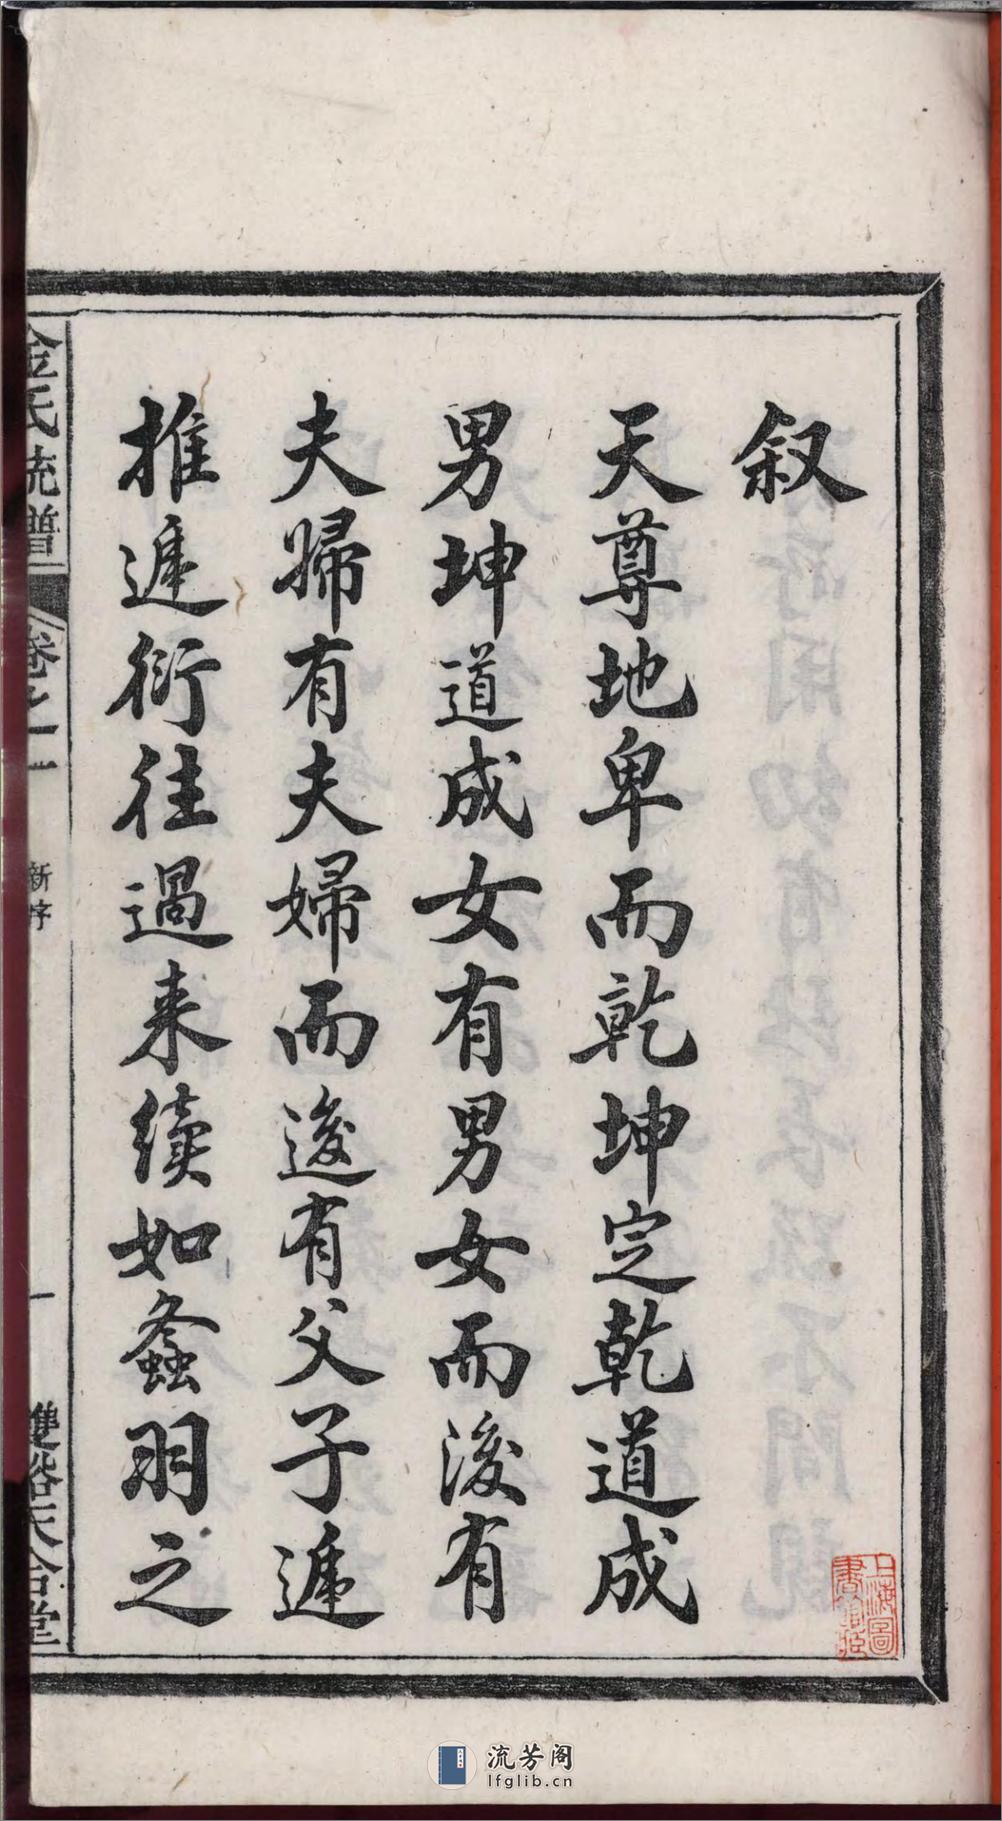 叙
天尊地卑而乾坤定乾道成
男坤道成女有男女而後有
夫婦有夫婦而後有父子遞
推遞衍往過来續如螽羽之
金氏統譜
卷之一
新序
一
雙谿天合堂
上海圖
書館藏
流芳阁
lfglib.cn